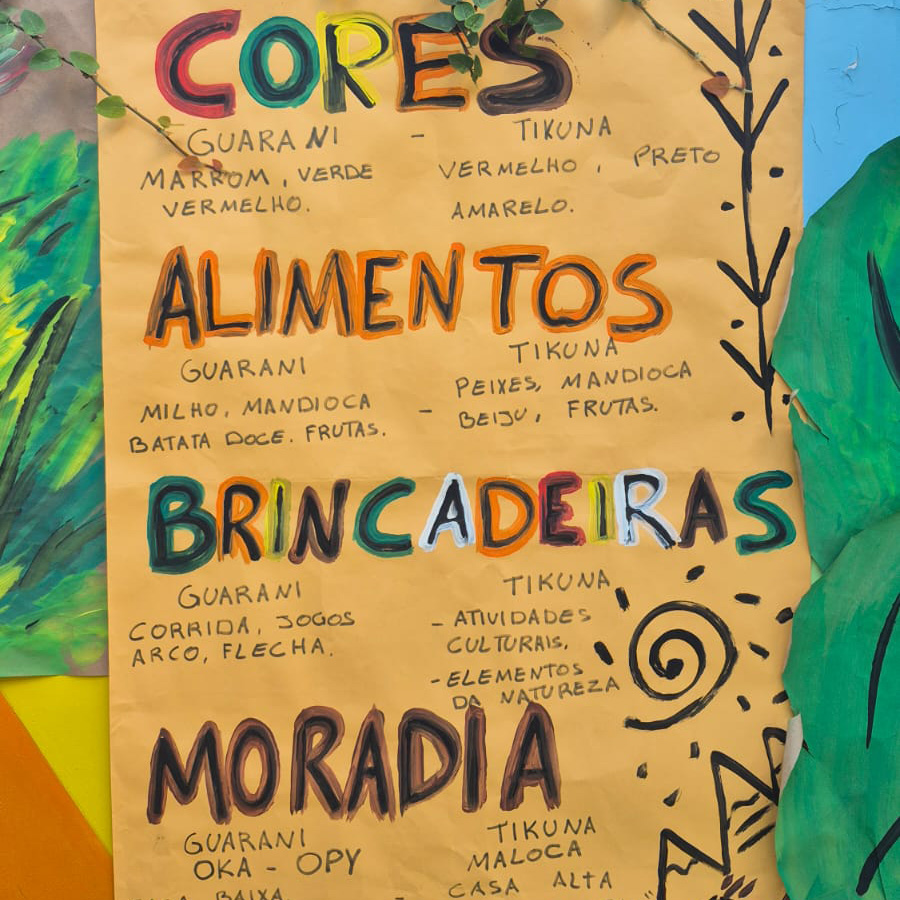 CORES
GUARANI - TIKUNA
MARROM, VERDE
VERMELHO.
VERMELHO, PRETO
AMARELO.
ALIMENTOS
GUARANI
MILHO, MANDIOCA
BATATA DOCE. FRUTAS.
-
TIKUNA
PEIXES, MANDIOCA
BEIJU, FRUTAS.
BRINCADEIRAS
GUARANI
CORRIDA, JOGOS
ARCO, FLECHA.
TIKUNA
- ATIVIDADES
CULTURAIS,
- ELEMENTOS
DA NATUREZA
MORADIA
GUARANI
OKA - OPY
BAIXA.
-
TIKUNA
MALOCA
CASA ALTA